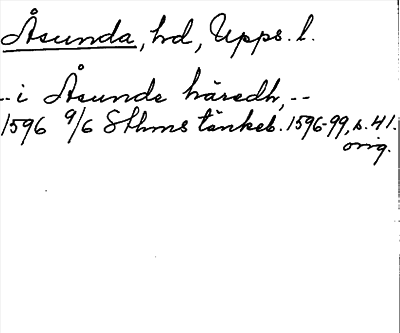 Åsunda, hd, Upps. l.
-- i Åsunde häredh, --
1596 9/6 Sthms tänkeb. 1596-99, s. 41.
orig.